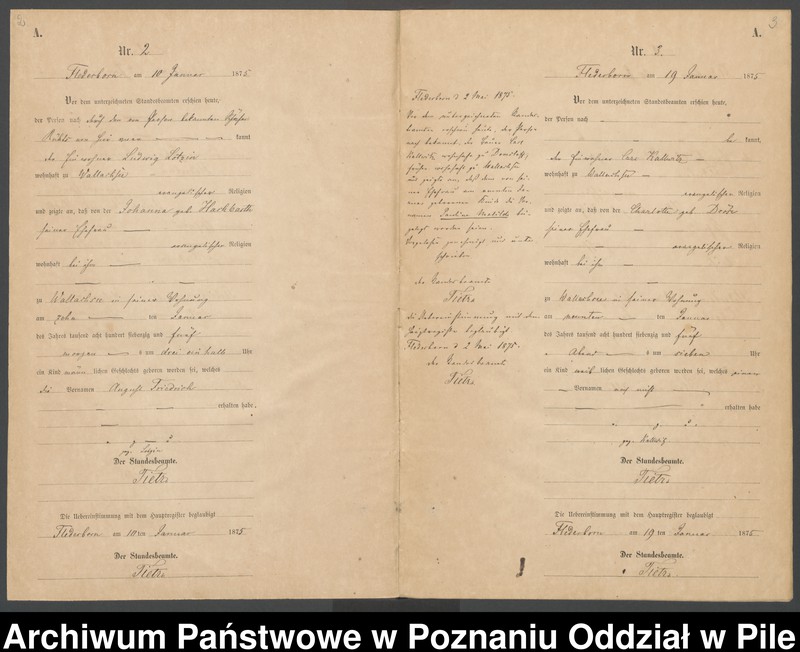 A.
Nr. 2
Flederborn am 10 Januar 1875
Vor dem unterzeichneten Standesbeamten erschien heute,
der Person nach
kannt
der Einwohner Ludwig
wohnhaft zu Wallachsee
evangelischer Religion
und zeigte an, daß von der Johanna geb.
seiner Ehefrau
evangelischer Religion
wohnhaft bei ihm
zu Wallachsee in seiner Wohnung
am ten Januar
des Jahres tausend acht hundert siebenzig und fünf
morgens um drei ein halb Uhr
ein Kind männlichen Geschlechts geboren worden sei, welches
die Vornamen August Friedrich
erhalten habe.
v. g. u.
gez.
Der Standesbeamte.
Tietz
Die Uebereinstimmung mit dem Hauptregister beglaubigt
Flederborn am 10 ten Januar 1875
Der Standesbeamte.
Tietz
Flederborn d 2 Mai 1875
Vor dem unterzeichneten Standes-
beamten erschien heute, der Person
nach bekannt, der
früher wohnhaft zu Wallachsee
und zeigte an, daß dem von sei-
ner Ehefrau am neunten Ja-
nuar geborenen Kinde die Vor-
namen Mathilde bei-
gelegt worden seien.
Vorgelesen genehmigt und unter-
schrieben
der Standesbeamte
Tietz
die Uebereinstimmung mit dem
Hauptregister beglaubigt
Flederborn d 2 Mai 1875.
der Standesbeamte
Tietz
3
A.
Nr. 3.
Flederborn am 19 Januar 1875
Vor dem unterzeichneten Standesbeamten erschien heute,
der Person nach
be kannt,
der Einwohner Carl
wohnhaft zu Wallachsee
evangelischer Religion
und zeigte an, daß von der Charlotte geb.
seiner Ehefrau
evangelischer Religion
wohnhaft bei ihm
zu Wallachsee in seiner Wohnung
am neunten ten Januar
des Jahres tausend acht hundert siebenzig und fünf
Abend um sieben Uhr
ein Kind weiblichen Geschlechts geboren worden sei, welches einen
Vornamen noch nicht
erhalten habe
v. g. u.
gez.
Der Standesbeamte.
Tietz
Die Uebereinstimmung mit dem Hauptregister beglaubigt
Flederborn am 19 ten Januar 1875
Der Standesbeamte.
Tietz
Archiwum Państwowe w Poznaniu Oddział w Pile